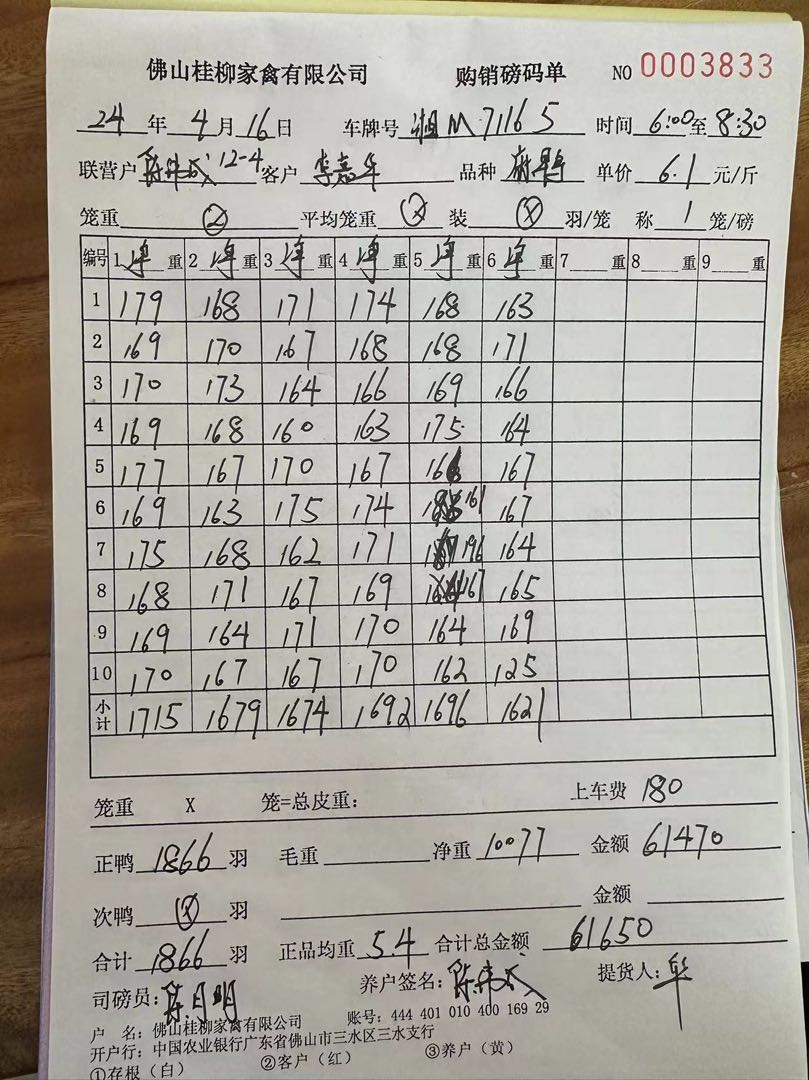 佛山桂柳家禽有限公司 购销磅码单 NO 0003833
24 年 4 月 16 日 车牌号 湘M71165 时间 6:00 至 8:30
联营户 12-4 客户 李嘉华 品种 单价 6.1 元/斤
笼重 平均笼重 装 羽/笼 称 1 笼/磅
编号 1 净 重 2 净 重 3 净 重 4 净 重 5 净 重 6 净 重 7 重 8 重 9 重
1 179 168 171 174 168 163
2 169 170 167 168 168 171
3 170 173 164 166 169 166
4 169 168 160 163 175 164
5 177 167 170 167 166 167
6 169 163 175 174 161 167
7 175 168 162 171 196 164
8 168 171 167 169 167 165
9 169 164 171 170 164 169
10 170 167 167 170 162 125
小计 1715 1679 1674 1692 1696 1621
笼重 X 笼=总皮重: 上车费 180
正鸭 1866 羽 毛重 净重 10077 金额 61470
次鸭 羽 金额
合计 1866 羽 正品均重 5.4 合计总金额 61650
司磅员: 陈月明 养户签名: 提货人: 华
户 名: 佛山桂柳家禽有限公司 账号: 444 401 010 400 169 29
开户行: 中国农业银行广东省佛山市三水区三水支行
①存根（白） ②客户（红） ③养户（黄）